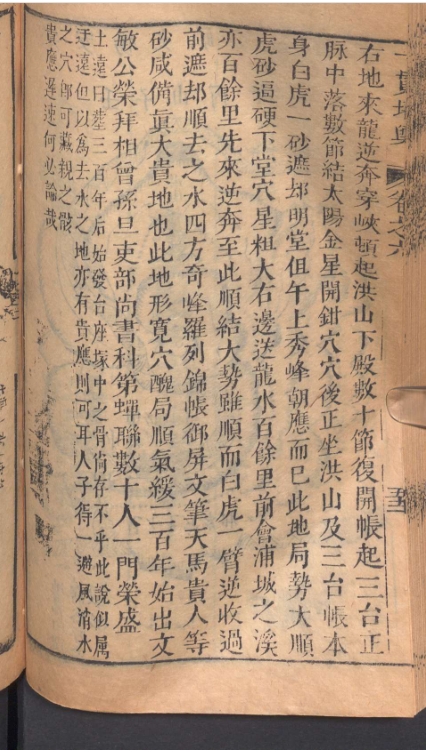 右地來龍逆奔穿峽頓起洪山下殿數十節復開帳起三台正
脉中落數節結太陽金星開鉗穴穴後正坐洪山及三台帳本
身白虎一砂遮却明堂但午上秀峰朝應而巳此地局勢大順
虎砂逼硬下堂穴星粗大右邊送龍水百餘里前會浦城之溪
亦百餘里先來逆奔至此順結大勢雖順而白虎一臂逆收過
前遮却順去之水四方奇峰羅列錦帳御屏文筆天馬貴人等
砂咸備眞大貴地也此地形寬穴醜局順氣緩三百年始出文
敏公榮拜相曾孫旦吏部尙書科第蟬聯數十人一門榮盛
土遠曰塟三百年后始發台座塚中之骨尙存不乎此說似属
迂遠但以爲去水之地亦有貴應則可耳人子得一避風消水
之穴卽可藏親之骸
貴應遲速何必論哉
一貫堪輿
卷之六